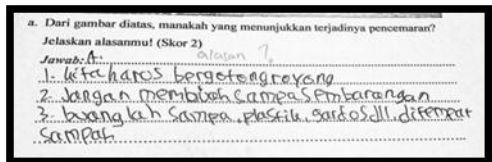 a. Dari gambar diatas, manakah yang menunjukkan terjadinya pencemaran?
Jelaskan alasanmu! (Skor 2)
Jawab: A. alasan ?
1. kita haros bergotong royong
2. Jangan membuah sampa sembarangan
3. buanglah sampa, plastik, gardos dll. ditempat
sampah